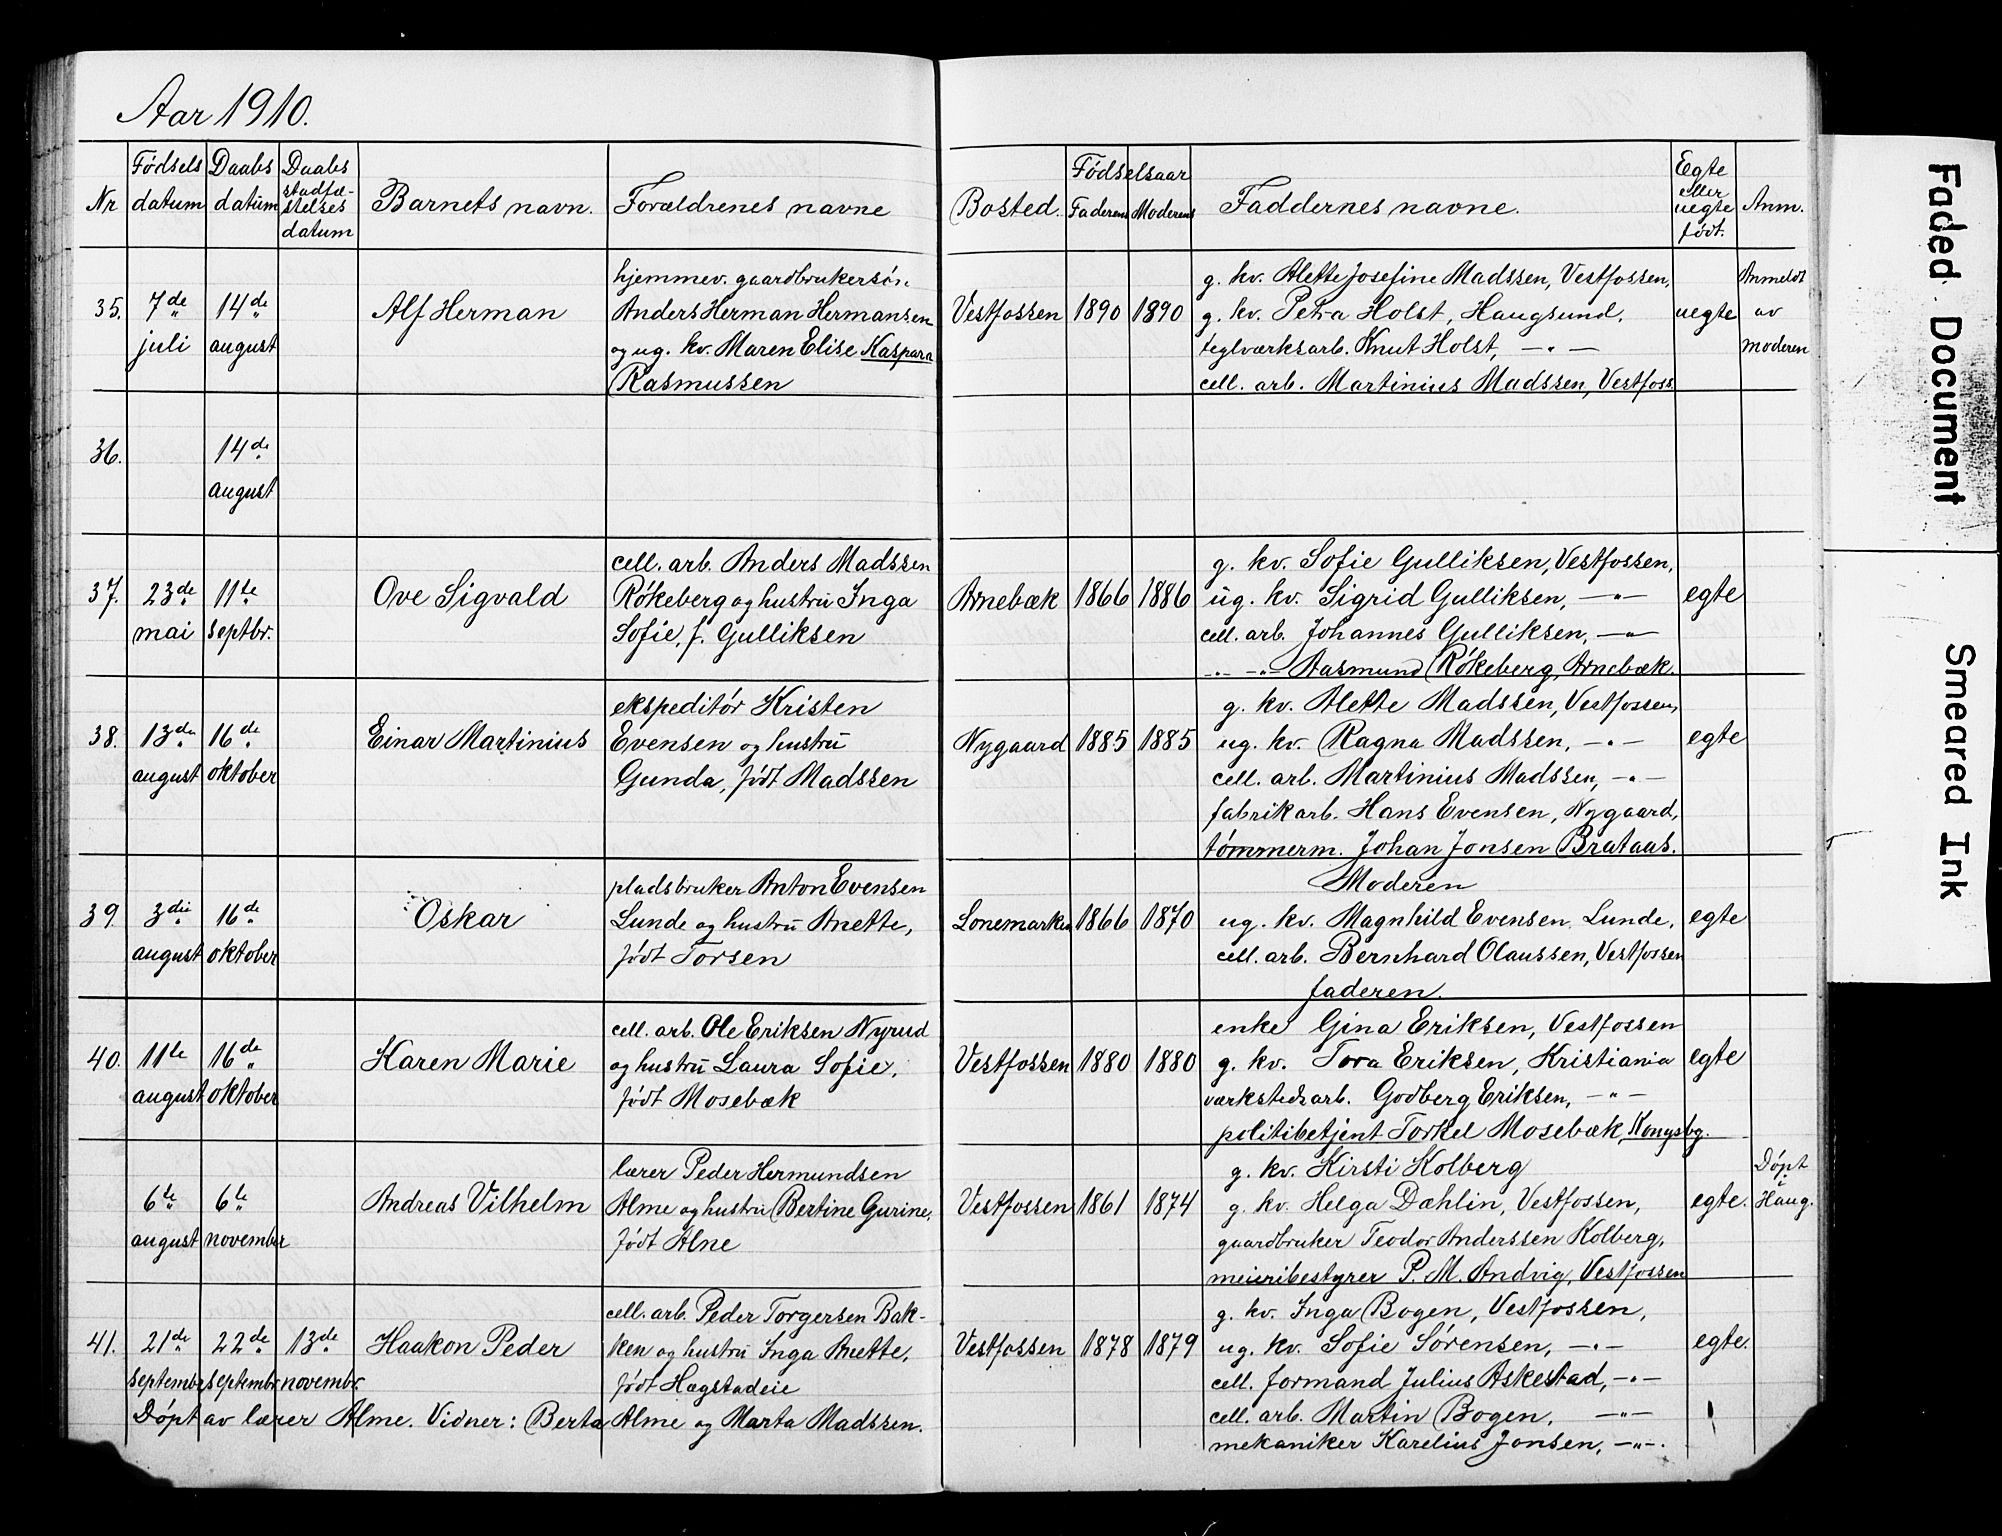 Aar 1910.
Nr
Fødsels datum
Daabs datum
Daabs stadfæ- stelses datum
Barnets navn.
Forældrenes navne
Bosted.
Fødselsaar
Faderens
Moderens
Faddernes navne.
Egte eller uegte født.
Anm.
35.
7de juli
14de august
Alf Herman
hjemmev. gaardbrukersøn
Anders Herman Hermansen
og ug. kv. Maren Elise Kaspara
Rasmussen
Vestfossen
1890
1890
g. kv. Alette Josefine Madssen, Vestfossen,
g. kv. Petra Holst, Haugsund.
teglværksarb. Knut Holst, —〃—
cell. arb. Martinius Madssen, Vestfoss.
uegte
Anmeldt
av
moderen
36.
14de
august
37.
23de mai
11te septbr.
Ove Sigvald
cell. arb. Anders Madssen
Røkeberg og hustru Inga
Sofie, f. Gulliksen
Arnebæk
1866
1886
g. kv. Sofie Gulliksen, Vestfossen,
ug. kv. Sigrid Gulliksen, —〃—
cell. arb. Johannes Gulliksen, —〃—
—〃— —〃— Aasmund Røkeberg, Arnebæk.
egte
38.
13de august
16de oktober
Einar Martinius
ekspeditør Kristen
Evensen og hustru
Gunda, født Madssen
Nygaard
1885
1885
g. kv. Alette Madssen, Vestfossen,
ug. kv. Ragna Madssen, —〃—
cell. arb. Martinius Madssen, —〃—
fabrikarb. Hans Evensen, Nygaard,
tømmerm. Johan Jonsen Brataas.
egte
39.
3die august
16de oktober
Oskar
pladsbruker Anton Evensen
Lunde og hustru Anette,
født Torsen
Lonemarken
1866
1870
Moderen
ug. kv. Magnhild Evensen Lunde,
cell. arb. Bernhard Olaussen, Vestfossen
faderen.
egte
40.
11te august
16de oktober
Karen Marie
cell. arb. Ole Eriksen Nyrud
og hustru Laura Sofie,
født Mosebæk
Vestfossen
1880
1880
enke Gina Eriksen, Vestfossen
g. kv. Tora Eriksen, Kristiania
værkstedsarb. Godberg Eriksen, —〃—
politibetjent Torkel Mosebæk, Kongsbg.
egte
6te august
6te november
Andreas Vilhelm
lærer Peder Hermundsen
Alme og hustru Bertine Gurine,
født Alne
Vestfossen
1861
1874
g. kv. Kirsti Kolberg
g. kv. Helga Dæhlin, Vestfossen,
gaardbruker Teodor Anderssen Kolberg,
meieribestyrer P. M. Andvig, Vestfossen
egte.
Døpt
i
Haug.
41.
21de septembr.
22de septembr.
13de novembr.
Haakon Peder
cell. arb. Peder Torgersen Bak-
ken og hustru Inga Anette,
født Hægstadeie
Vestfossen
1878
1879
g. kv. Inga Bogen, Vestfossen,
ug. kv. Sofie Sørensen, —〃—
cell. formand Julius Askestad, —〃—
cell. arb. Martin Bogen, —〃—
mekaniker Karelius Jonsen, —〃—.
egte.
Døpt av lærer Alme. Vidner: Berta Alme og Marta Madssen.
Faded Document
Smeared Ink